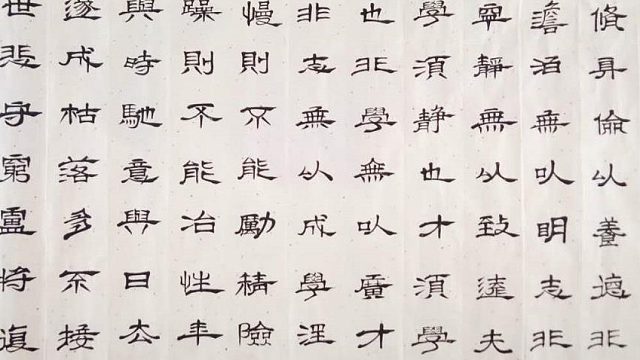 脩身儉以養德非
澹泊無以明志非
寧靜無以致遠夫
學須静也才須學
也非學無以廣才
非志無以成學淫
慢則不能勵精險
躁則不能冶性年
與時馳意與日去
遂成枯落多不接
世悲守窮盧將復